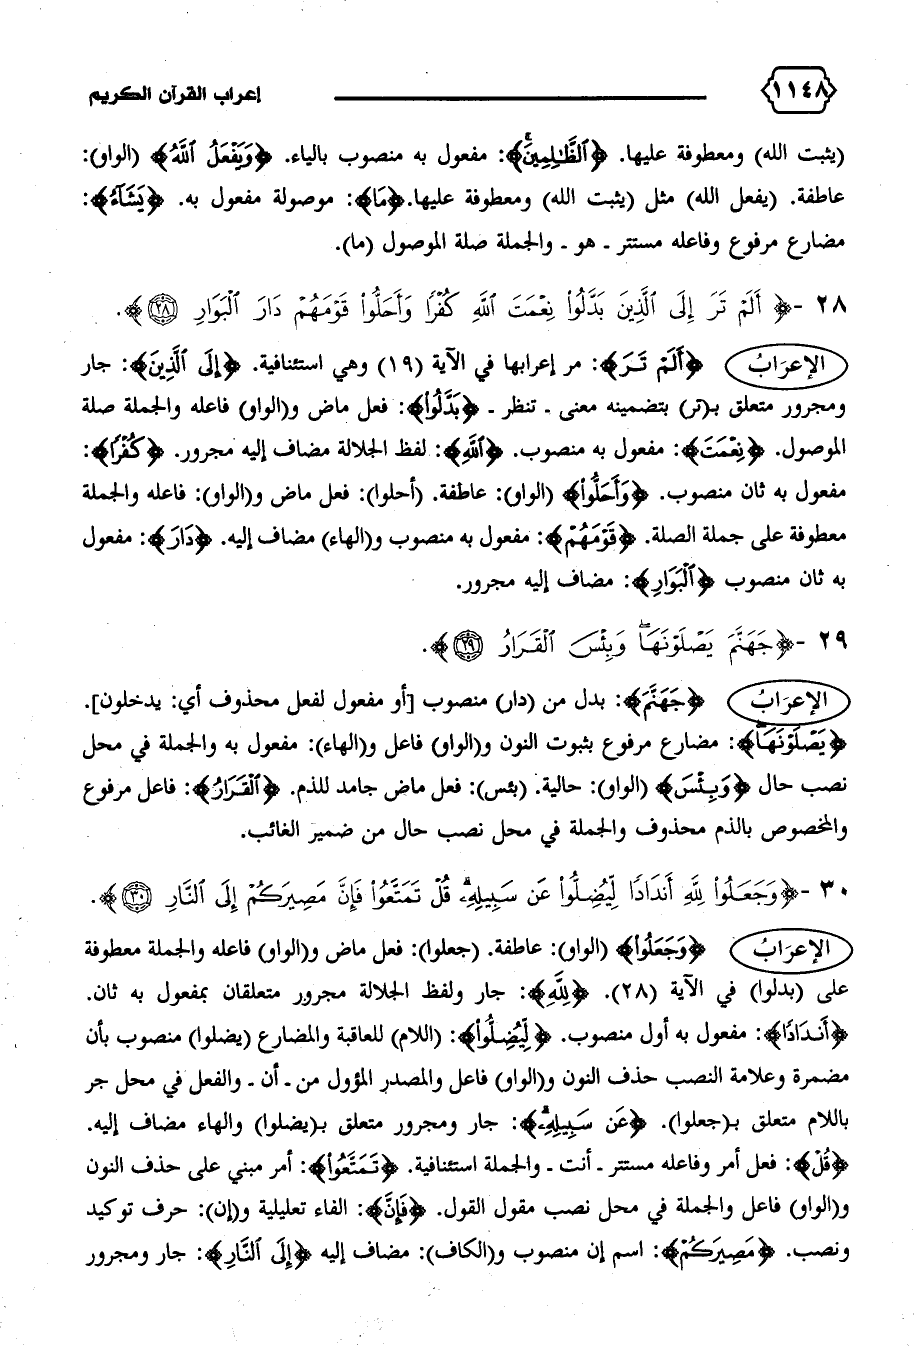 ١١٤٨ إعراب القرآن الكريم
(يثبت الله) ومعطوفة عليها. ﴿ٱلظَّـٰلِمِينَۚ﴾: مفعول به منصوب بالياء. ﴿وَيَفْعَلُ ٱللَّهُ﴾ (الواو):
عاطفة. (يفعل الله) مثل (يثبت الله) ومعطوفة عليها. ﴿مَا﴾: موصولة مفعول به. ﴿يَشَآءُ﴾:
مضارع مرفوع وفاعله مستتر ـ هو ـ والجملة صلة الموصول (ما).
٢٨ - ﴿ أَلَمْ تَرَ إِلَى ٱلَّذِينَ بَدَّلُوا۟ نِعْمَتَ ٱللَّهِ كُفْرًا وَأَحَلُّوا۟ قَوْمَهُمْ دَارَ ٱلْبَوَارِ ٢٨﴾.
الإعرَابُ ﴿أَلَمْ تَرَ﴾: مر إعرابها في الآية (١٩) وهي استئنافية. ﴿إِلَى ٱلَّذِينَ﴾: جار
ومجرور متعلق بـ(تر) بتضمينه معنى ـ تنظر ـ ﴿بَدَّلُوا۟﴾: فعل ماض و(الواو) فاعله والجملة صلة
الموصول. ﴿نِعْمَتَ﴾: مفعول به منصوب. ﴿ٱللَّهِ﴾: لفظ الجلالة مضاف إليه مجرور. ﴿كُفْرًا﴾:
مفعول به ثان منصوب. ﴿وَأَحَلُّوا۟﴾ (الواو): عاطفة. (أحلوا): فعل ماض و(الواو): فاعله والجملة
معطوفة على جملة الصلة. ﴿قَوْمَهُمْ﴾: مفعول به منصوب و(الهاء) مضاف إليه. ﴿دَارَ﴾: مفعول
به ثان منصوب ﴿ٱلْبَوَارِ﴾: مضاف إليه مجرور.
٢٩ - ﴿جَهَنَّمَ يَصْلَوْنَهَا ۖ وَبِئْسَ ٱلْقَرَارُ ٢٩﴾.
الإعرَابُ ﴿جَهَنَّمَ﴾: بدل من (دار) منصوب [أو مفعول لفعل محذوف أي: يدخلون].
﴿يَصْلَوْنَهَا ۖ﴾: مضارع مرفوع بثبوت النون و(الواو) فاعل و(الهاء): مفعول به والجملة في محل
نصب حال ﴿وَبِئْسَ﴾ (الواو): حالية. (بئس): فعل ماض جامد للذم. ﴿ٱلْقَرَارُ﴾: فاعل مرفوع
والمخصوص بالذم محذوف والجملة في محل نصب حال من ضمير الغائب.
٣٠ - ﴿وَجَعَلُوا۟ لِلَّهِ أَندَادًا لِّيُضِلُّوا۟ عَن سَبِيلِهِۦ ۗ قُلْ تَمَتَّعُوا۟ فَإِنَّ مَصِيرَكُمْ إِلَى ٱلنَّارِ ٣٠﴾.
الإعرَابُ ﴿وَجَعَلُوا۟﴾ (الواو): عاطفة. (جعلوا): فعل ماض و(الواو) فاعله والجملة معطوفة
على (بدلوا) في الآية (٢٨). ﴿لِلَّهِ﴾: جار ولفظ الجلالة مجرور متعلقان بمفعول به ثان.
﴿أَندَادًا﴾: مفعول به أول منصوب. ﴿لِّيُضِلُّوا۟﴾: (اللام) للعاقبة والمضارع (يضلوا) منصوب بأن
مضمرة وعلامة النصب حذف النون و(الواو) فاعل والمصدر المؤول من ـ أن ـ والفعل في محل جر
باللام متعلق بـ(جعلوا). ﴿عَن سَبِيلِهِۦ ۗ﴾: جار ومجرور متعلق بـ(يضلوا) والهاء مضاف إليه.
﴿قُلْ﴾: فعل أمر وفاعله مستتر ـ أنت ـ والجملة استئنافية. ﴿تَمَتَّعُوا۟﴾: أمر مبني على حذف النون
و(الواو) فاعل والجملة في محل نصب مقول القول. ﴿فَإِنَّ﴾: الفاء تعليلية و(إن): حرف توكيد
ونصب. ﴿مَصِيرَكُمْ﴾: اسم إن منصوب و(الكاف): مضاف إليه ﴿إِلَى ٱلنَّارِ﴾: جار ومجرور